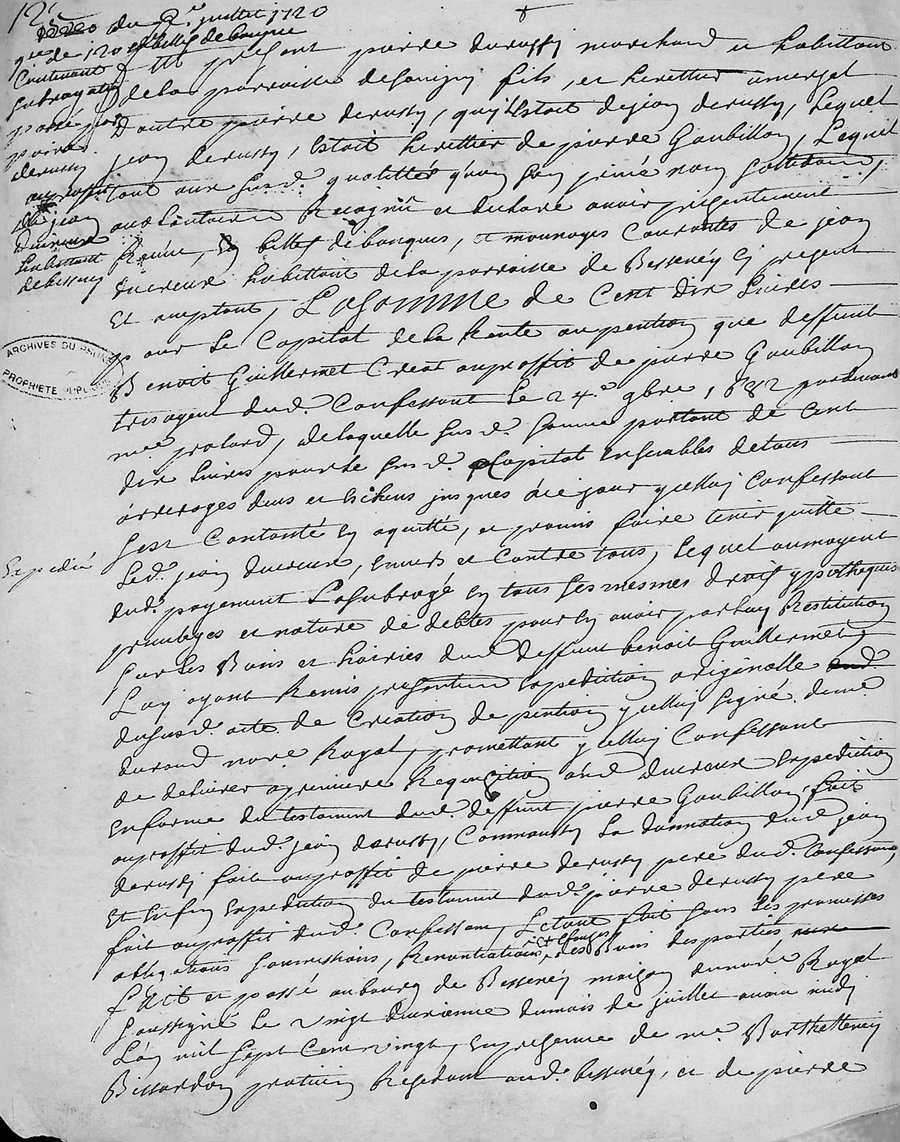 du 22e juillet 1720
qce de 120 et billet de banque
Contenant
subrogation
passé par
pierre
derussy
au proffit
de jean
ducreux
habittant
de besseney
fut present pierre derussy marchand et habittant
de la parroisse de savigny fils, et heritier universel
d'autre pierre derussy, qu'il estoit de jean derussy, Lequel
jean derussy, estoit herittier de pierre Goubillon, Lequel
tout aux susd. qualittés qu'en son privé nom sollidaire,
Reconnu et declaré avoir presentement
Receu, En billets de banques, et monnoyes Courantes de jean
ducreux habittant de la parroisse de Besseney Cy present
Et acceptant, La Somme de Cent dix Livres
pour Le Capital de la Rente ou pention que deffunt
Benoit Guillermet Crea au proffit de pierre Goubillon
dud. Confessant le 24e 9bre 1682 pardevant
me , de laquelle susd. somme portant de Cent
dix Livres pour le susd. Capital Ensembles de tous
arrerages deus et Echeus jusques à ce jour yCelluy Confessant
s'est Contanté Et quitté, et promis faire tenir quitte
Led. jean ducreux, Envers et Contre tous, Lequel au moyent
dud. payement L'a subrogé En tous ses mesmes droits ypotheques
privileges et nature de debtes pour En avoir par luy Restitution
sur les Biens et hoiries dud. deffunt benoit Guillermet
Luy ayant Remis presentement Expedition originalle
du susd. acte de Creation de pention yCelluy signé dud. me
durand nore Royal, promettant yCelluy Confessant
de delivrer a premiere Requisition aud. ducreux Expedition
En forme du testament dud. deffunt pierre Goubillon, fait
au proffit dud. jean derussy, Comme aussy La donnation dud. jean
derussy fait au proffit de pierre derussy pere dud. Confessant,
Et Enfin Expedition du testament dud. pierre derussy pere
fait au proffit dud. Confessant, Le tout fait sous Les promesses
obligations soumissions, Renontiations Et Clauses des Biens des parties
fait et passé au bourg de Besseney maison du nore Royal
soussigné Le vingt deuxieme du mois de juillet avant midy
L'an mil sept Cent vingt, En presence de me Barthellemy
Bissardon praticien Residant aud. besseney, et de pierre
Expedié
ARCHIVES DU RHONE
PROPRIETE PUBLIQUE